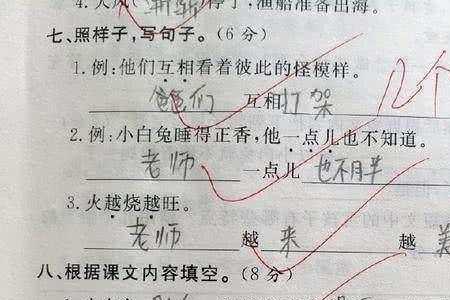 4.大风(渐渐)停了,渔船准备出海。
七、照样子,写句子。(6分)
1.例:他们互相看着彼此的怪模样。
爸爸们 互相打架
2个
2.例:小白兔睡得正香,他一点儿也不知道。
老师 一点儿 也不胖
3.火越烧越旺。
老师 越 来 越 美
八、根据课文内容填空。(8分)